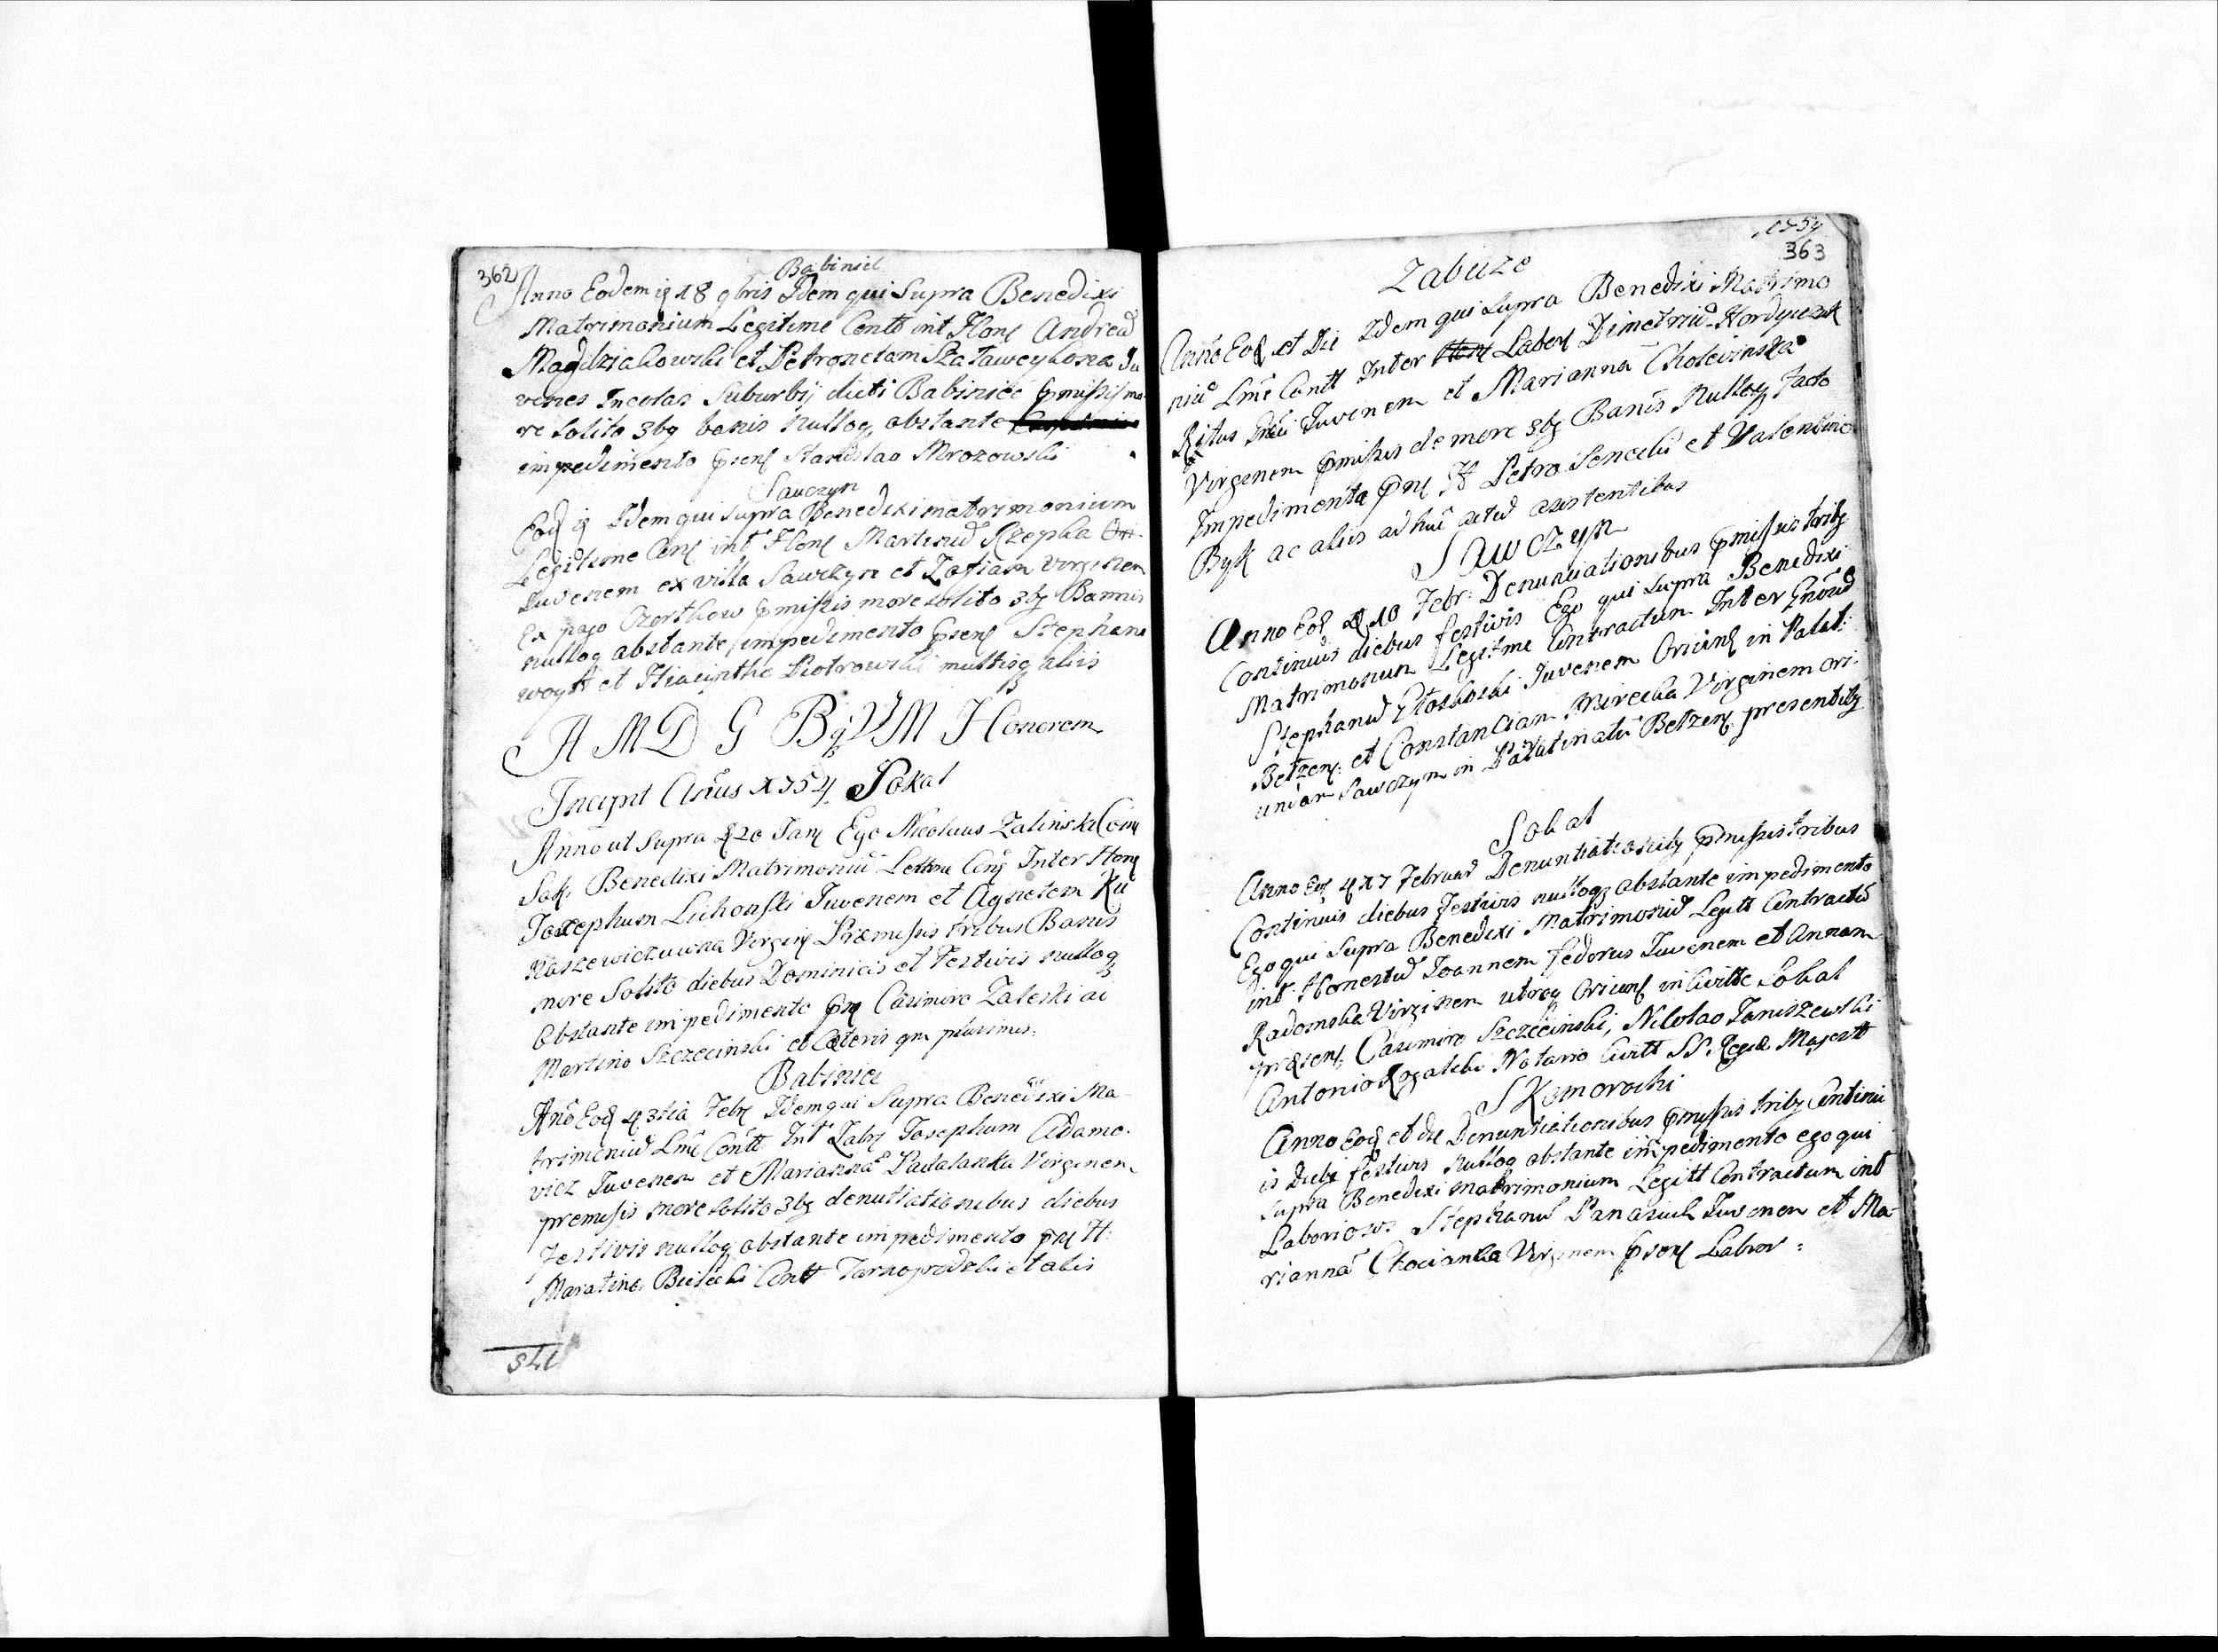 362
Babiniec
Anno Eodem 18 9bris Idem qui Supra Benedixi
Matrimonium Legitime Contt int Hon Andreā
Magdziakowski et Petronelam Szaławcykona Ju
venes Incolas Suburbÿ dicti Babiniec pmissis mo
re solito 3bq banis nulloq obstante
impedimento psen Stanislao Mrozowski
Sawczyn
Eod Idem qui supra Benedixi matrimonium
Legitime Con int Hon Martinū Rzepka Ori
Iuvenem ex villa Sawczyn et Zofiam virginem
Ex pago Czortkow pmissis more solito 3bq Bannis
nulloq abstante impedimento psen Stephano
woytt et Hiacintho Piotrowski multisq aliis
A M D G B V M Honorem
Incipit Annus 1754 Sokal
Anno ut Supra 20 Jan Ego Nicolaus Zalinski Com
Sok Benedixi Matrimoniū Con Inter Hon
Josephum Lichonski Iuvenem et Agnetem Ku
naszewiczowna Virgin Præmissis tribus Banis
more Solito diebus Dominicis et Festivis nulloq
Obstante impedimento pn Casimiro Zaleski ac
Martino Szczecinski et Cæteris qm plurimis.
Babinice
Año Eod 3tia Febr Idem qui Supra Benedixi Ma
trimoniū Lme Contt Int Labr Josephum Adamo
vicz Iuvenem et Mariannā Padalanka Virginem
premissis more solito 3bq denutiationibus diebus
Festivis nulloq obstante impedimento pn H
Maratino Bielecki Antt Tarnogrodzki et aliis
541
1754
363
Zabuze
Anno Eod et Die Idem qui Supra Benedixi Matrimo
niū Lme Contt Inter Labor Dimetriū Hordyiczuk
Ritus Iuvenem et Marianna Choleвinska
Virginem pmissis de more 3bq Banis Nulloq facto
Impedimento pn H Petro Senecki et Valentino
Byk ac aliis ad huc actū asistentibus
Sawczyn
Anno Eod 10 Febr: Denuntiationibus pmissis tribq
Continuis diebus festivis Ego qui Supra Benedixi
Matrimonium Legitime Contractum Inter Gnosū
Stephanū Iuvenem Oriund in Palat:
Betzen: et Constanciam Mirecka Virginem ori:
undam Sawczyn in Palatinatū Betzen presentibq
Sokal
Anno Eod 17 Februar Denuntiationibq pmissis tribus
Continuis diebus festivis nulloq abstante impedimento
Ego qui Supra Benedixi Matrimoniū Legitt Contractū
int Honestū Ioannem Fedorus Iuvenem et Annam
Radomska Virginem utroq Oriund in Civitte Sokal
præsen: Casimiro Szczecinski, Nicolao Janiszewski
Antonio Rogalski Notario Civitt SS. Regiæ Majestt
Skomorochi
Anno Eod et die Denuntiationibus pmissis tribq Continu
is Dieb festivis nulloq abstante impedimento ego qui
Supra Benedixi Matrimonium Legitt Contractum int
Laborios. Stephanū Panasiuk Iuvenem et Ma
riannā Virginem psen Labor: